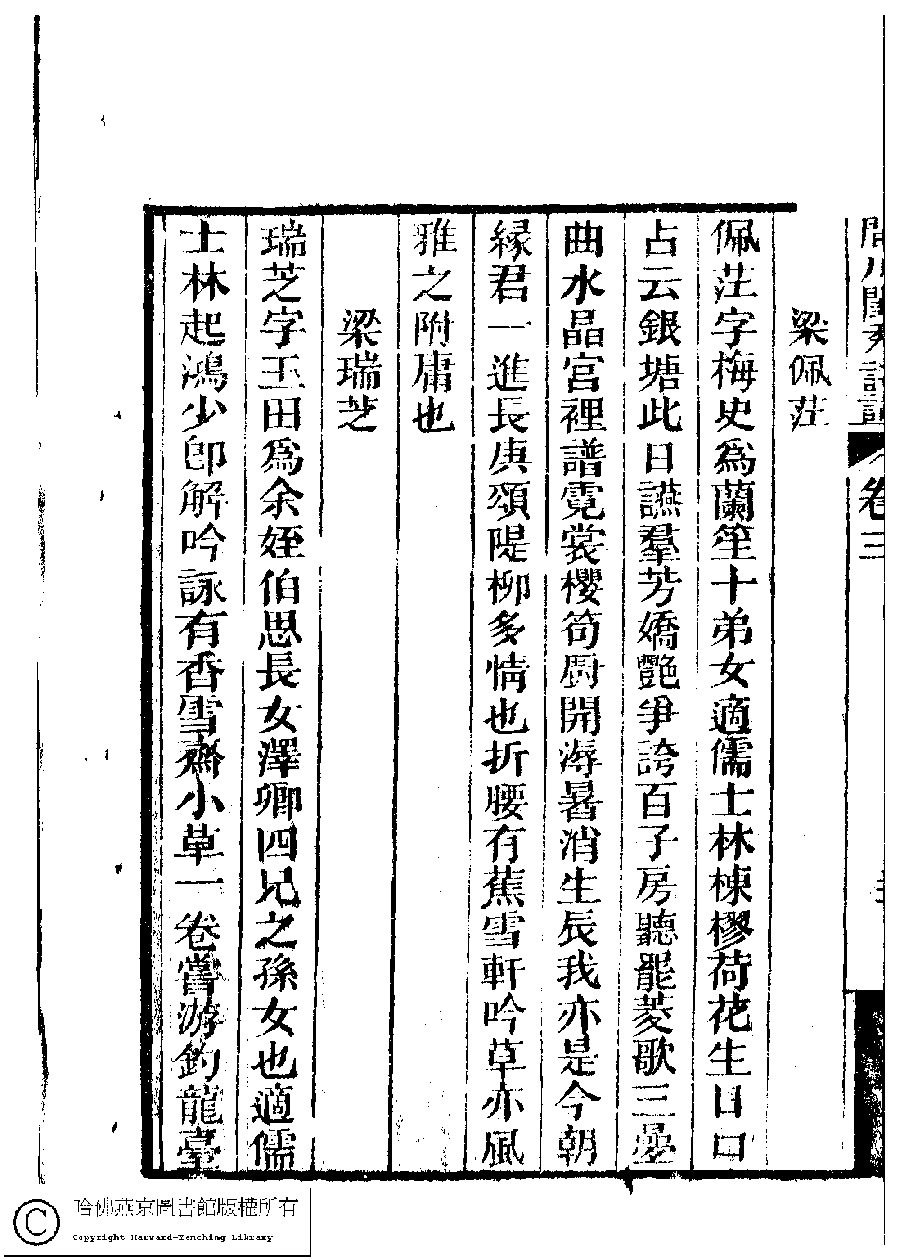 閨秀詩話
卷三
梁佩茳
佩茳字梅史為蘭笙十弟女適儒士林棟樛荷花生日口
占云銀塘此日讌羣芳嬌艷爭誇百子房聽罷菱歌三疊
曲水晶宮裡譜霓裳櫻筍廚開溽暑消生辰我亦是今朝
緣君一進長庚頌隄柳多情也折腰有蕉雪軒吟草亦風
雅之附庸也
梁瑞芝
瑞芝字玉田為余姪伯思長女澤卿四兄之孫女也適儒
士林起鴻少即解吟詠有香雪齋小草一卷嘗游釣龍臺
哈佛燕京圖書館版權所有
Copyright Harvard-Yenching Library